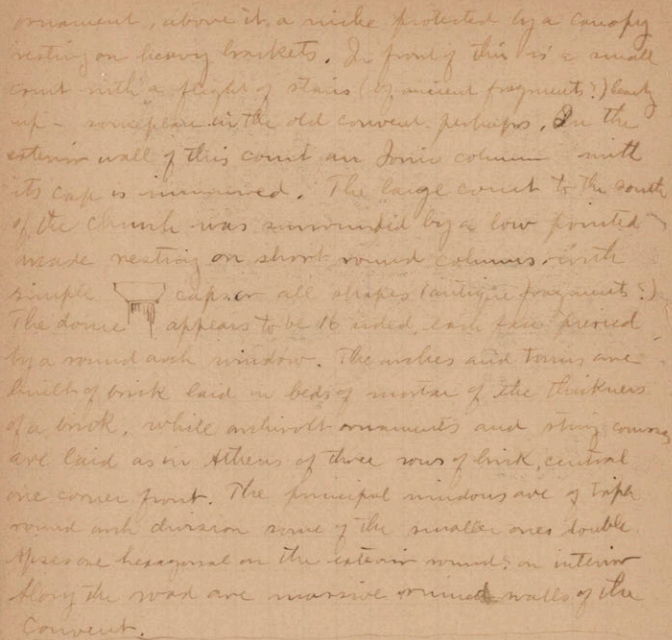 ornament, above it, a niche protected by a canopy
resting on heavy brackets. In front of this is a small
court with a flight of stairs (of ancient fragments?) leading
up - someplace in the old convent perhaps. In the
exterior wall of this court an Ionic column with
its cap is immured. The large court to the south
of the church was surrounded by a low pointed
arcade resting on short round columns with
simple caps or all shapes (antique fragments?)
The dome appears to be 16 sided, each face pierced
by a round arch window. The arches and drums are
built of brick laid in beds of mortar of the thickness
of a brick, while archivolt ornaments and string courses
are laid as in Athens of three rows of brick, central
one corner front. The principal windows are of triple
round arch division some of the smaller ones double.
Apses are hexagonal on the exterior round on interior
Along the road are massive ruined walls of the
Convent.